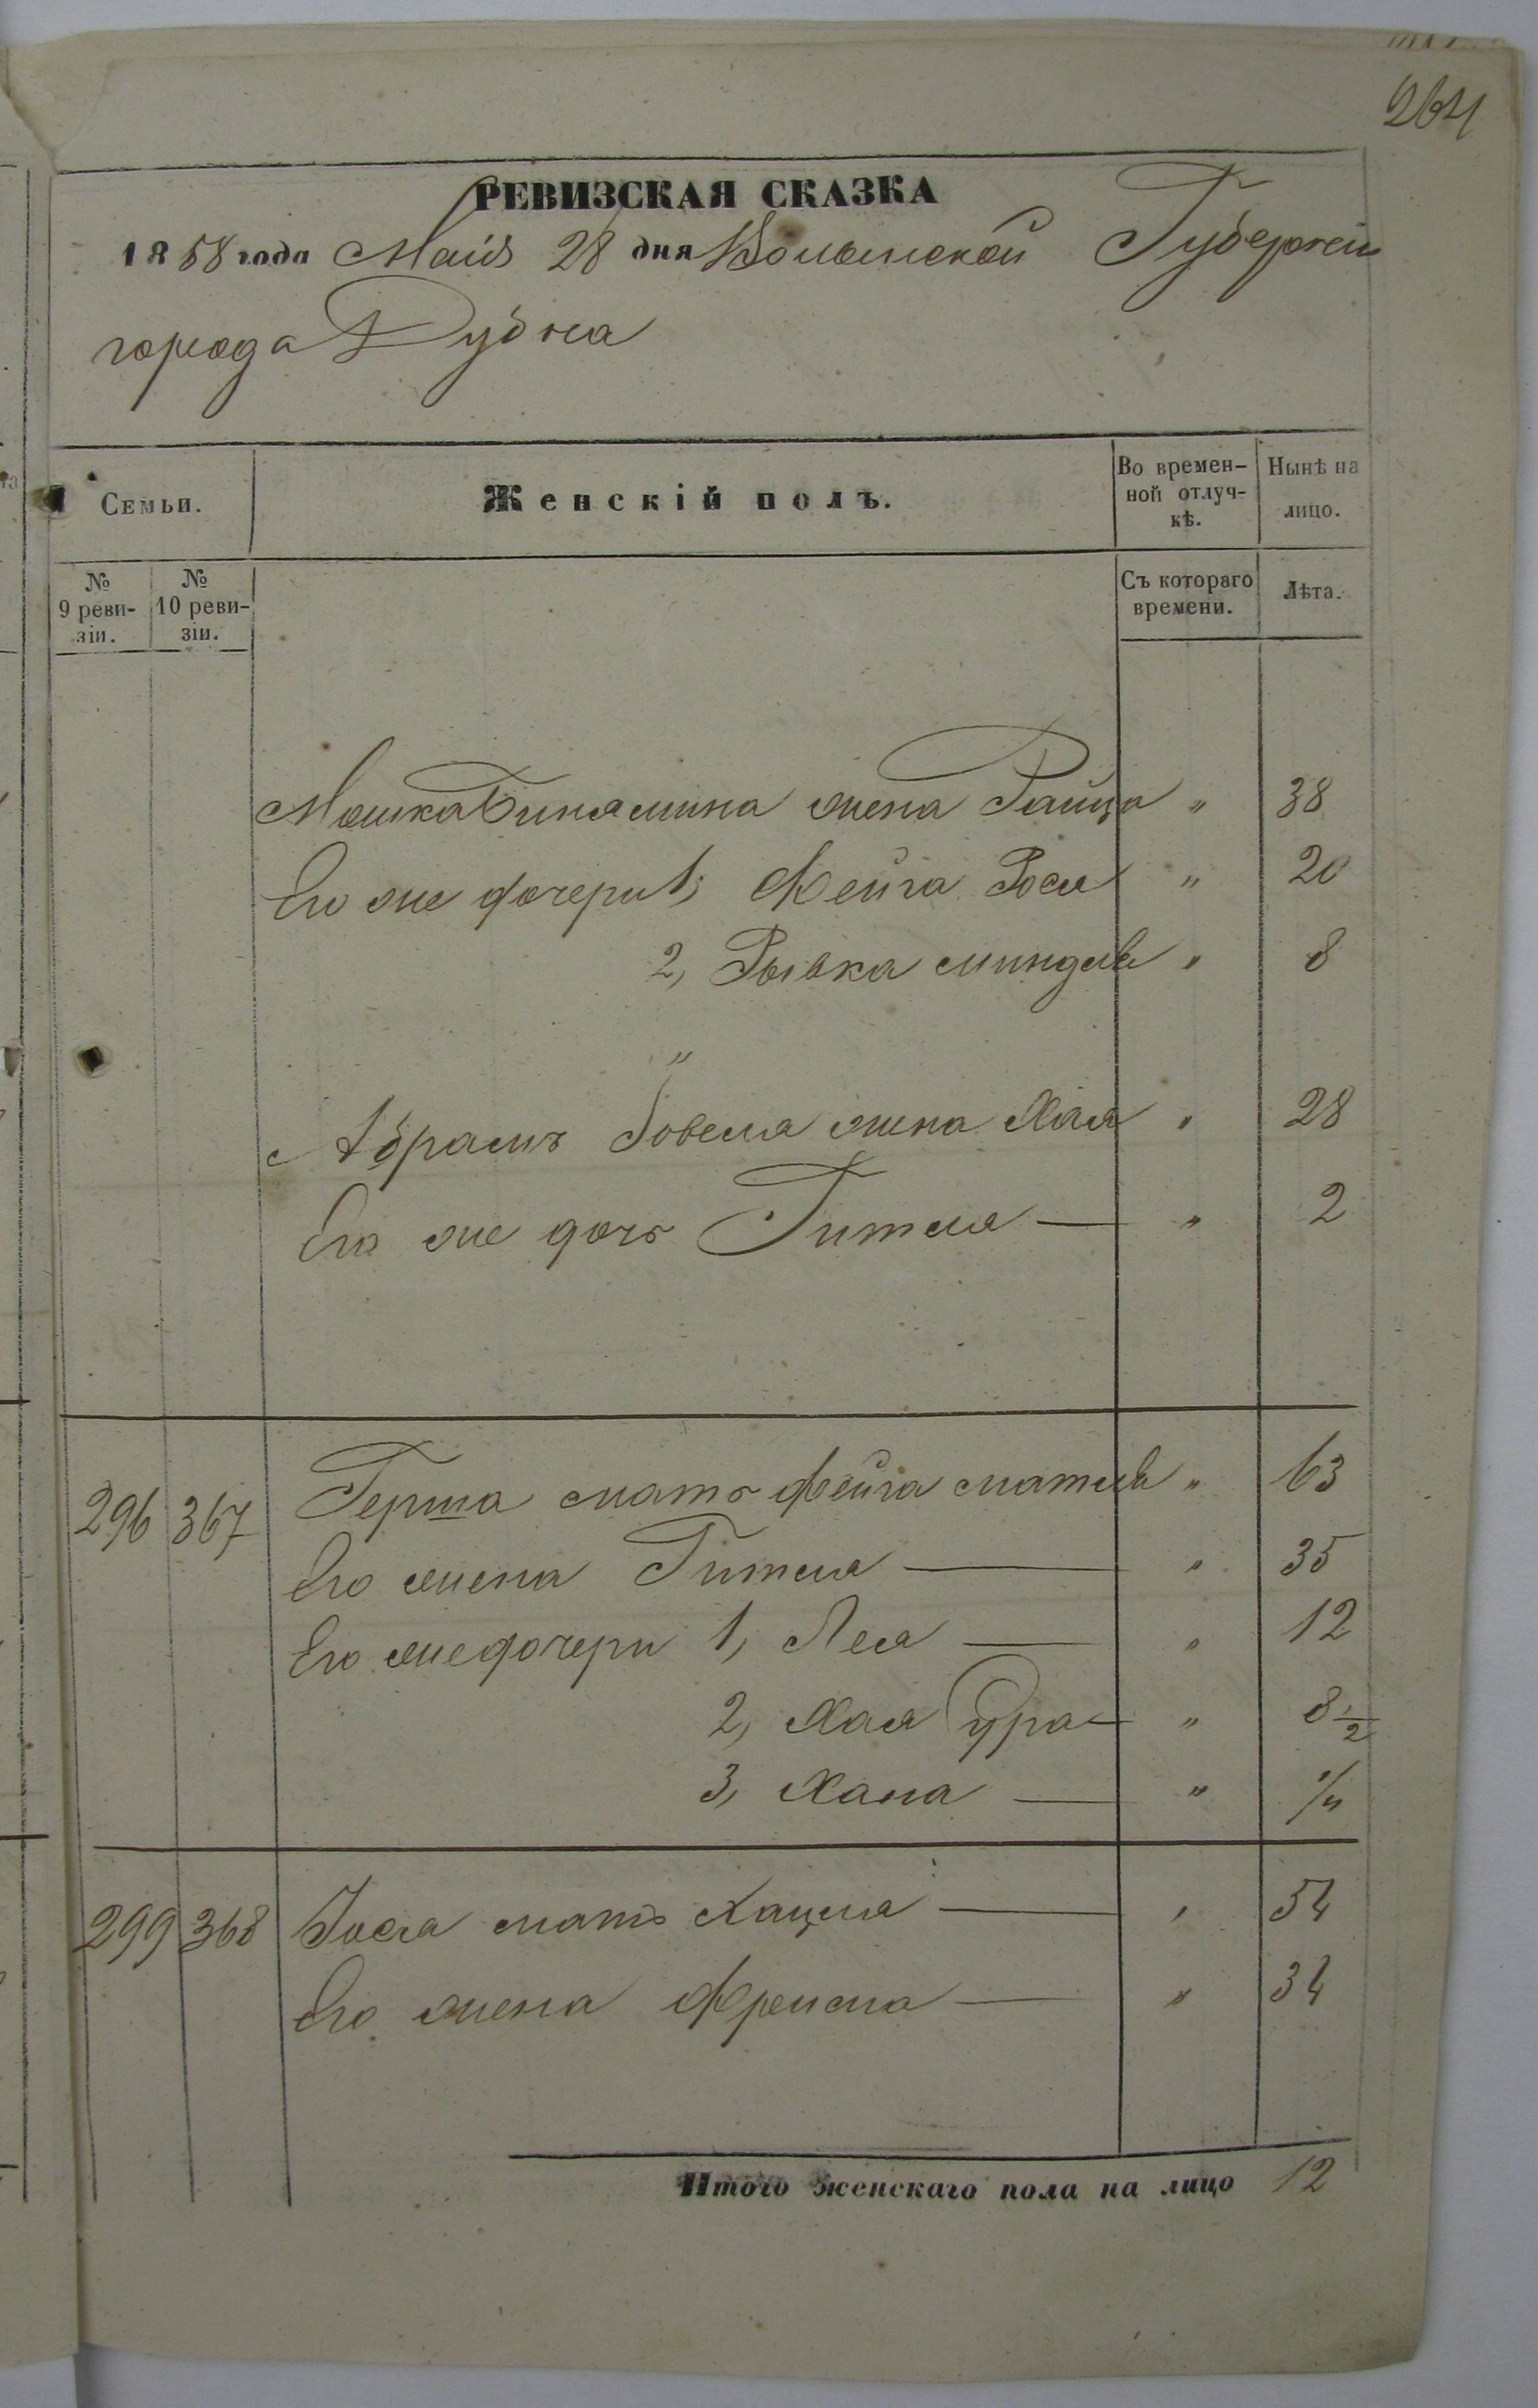 264
РЕВИЗСКАЯ СКАЗКА
1858 года Маія 28 дня Волынской Губерніи
города Дубна
Семьи.
Женскій полъ.
Во времен-
ной отлуч-
кѣ.
Нынѣ на
лицо.
№
9 реви-
зіи.
№
10 реви-
зіи.
Съ котораго
времени.
Лѣта.
Мошка Бинямина жена Райца " 38
Его же дочери 1, Фейга Рося " 20
2, Рывка миндля " 8
"
Абрамъ Іовеля жена Хая " 28
Его же дочь Гитля — " 2
296 367 Герша мать Фейга матля " 63
Его жена Гитля — " 35
Его же дочери 1, Лея — " 12
2, Хая Сура — " 8 1/2
3, Хана — " 1/4
299 368 Іося мать Хацля — " 54
Его жена Фреима — " 34
Итого женскаго пола на лицо 12